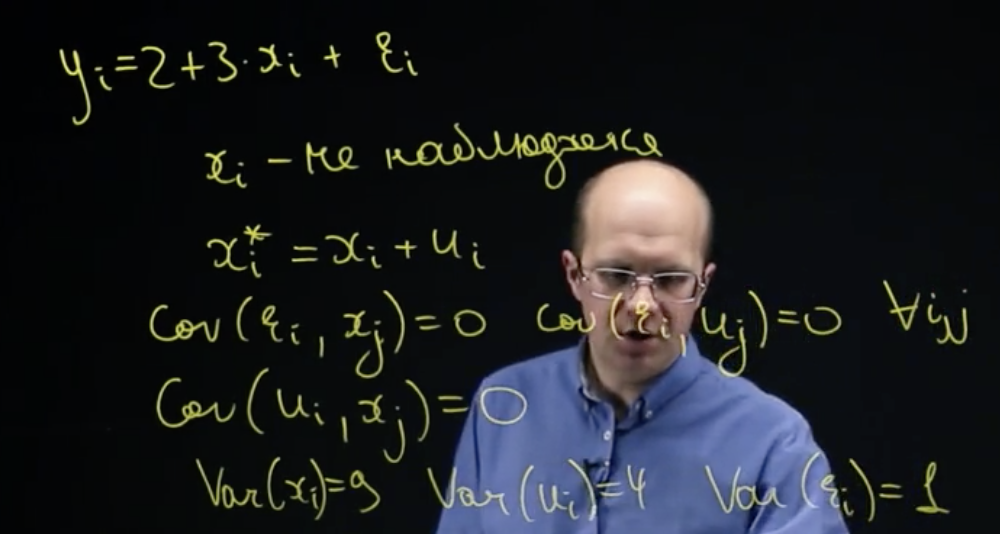 y_i = 2 + 3 · x_i + ε_i
x_i – не наблюдается
x_i^* = x_i + u_i
Cov(ε_i, x_j) = 0 cov(ε_i, u_j) = 0 ∀i,j
Cov(u_i, x_j) = 0
Var(x_i) = 9 Var(u_i) = 4 Var(ε_i) = 1